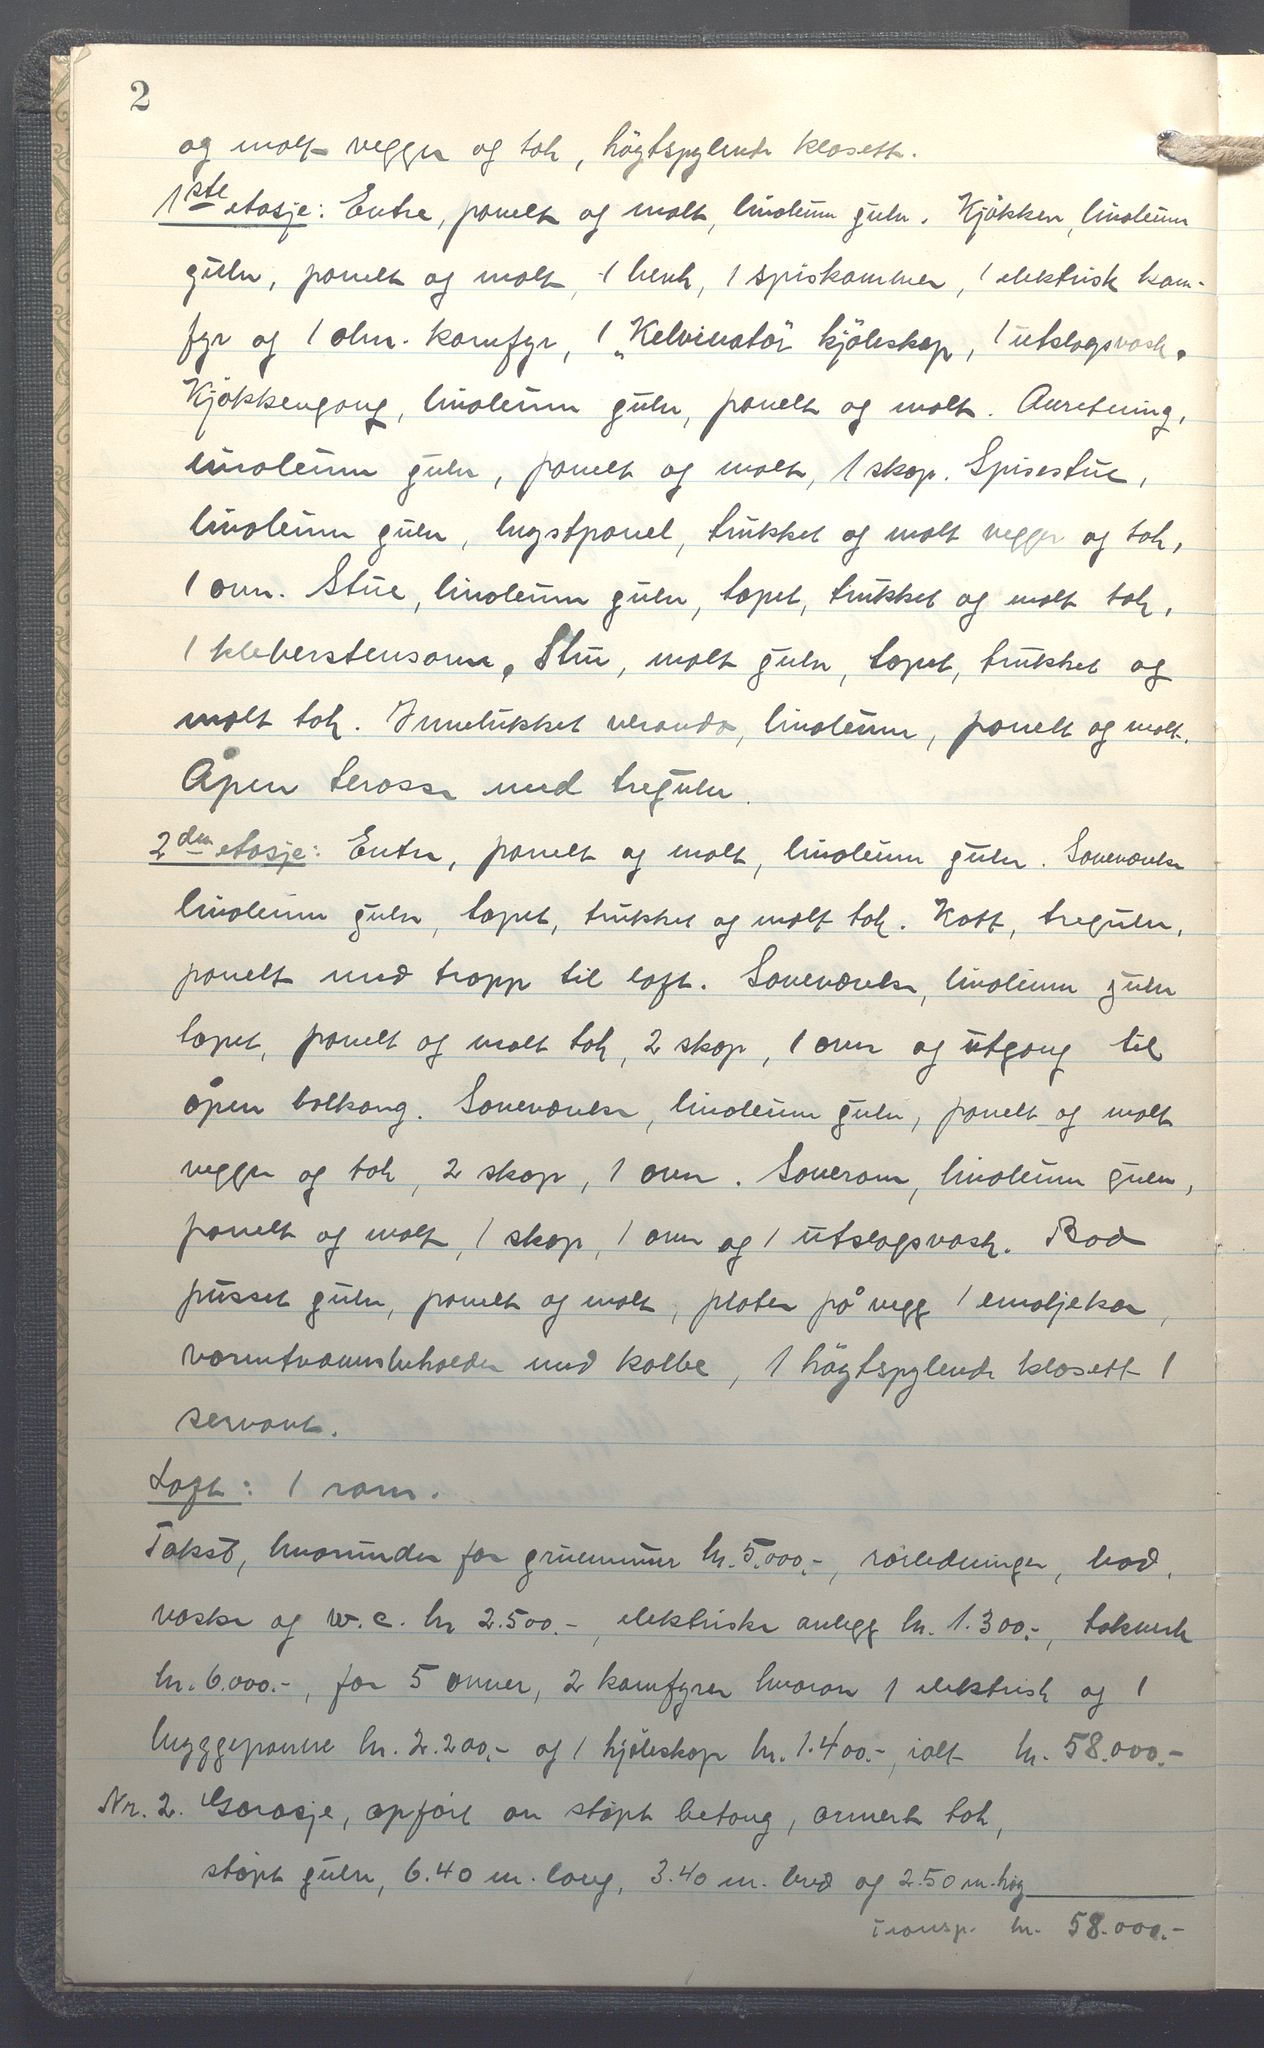 2
og malt vegger og tak, høgtspylende klosett.
1ste etasje: Entre, panelt og malt, linoleum gulv. Kjøkken, linoleum
gulv, panelt og malt, 1 benk, 1 spiskammer, 1 elektrisk kom-
fyr og 1 alm. komfyr, 1 „Kelvinator" kjøleskap, 1 utslagsvask.
Kjøkkengang, linoleum gulv, panelt og malt. Anretning,
linoleum gulv, panelt og malt, 1 skap. Spisestue,
linoleum gulv, brystpanel, trukket og malt vegger og tak,
1 ovn. Stue, linoleum gulv, tapet, trukket og malt tak,
1 kleberstensovn, Stue, malt gulv, tapet, trukket og
malt tak. Innelukket veranda, linoleum, panelt og malt.
Åpen terasse med tregulv.
2den etasje: Entre, panelt og malt, linoleum gulv. Soveværelse
linoleum gulv, tapet, trukket og malt tak. Kott, tregulv,
panelt med trapp til loft. Soveværelse, linoleum gulv
tapet, panelt og malt tak, 2 skap, 1 ovn og utgang til
åpen balkong. Soveværelse, linoleum gulv, panelt og malt
vegger og tak, 2 skap, 1 ovn. Soverom, linoleum gulv,
panelt og malt, 1 skap, 1 ovn og 1 utslagsvask. Bad
pusset gulv, panelt og malt, plater på vegg 1 emaljekar,
varmtvannsbeholder med kolbe, 1 høgtspylende klosett 1
servant.
Loft: 1 rom.
Takst, hvorunder for grunnmur kr. 5.000.-, rørledninger, bad,
vasker og w.c. kr 2.500.-, elektriske anlegg kr. 1.300.-, takverk
kr. 6.000.-, for 5 ovner, 2 komfyrer hvorav 1 elektrisk og 1
bryggepanne kr. 2.200.- og 1 kjøleskap kr. 1.400.-, ialt kr. 58.000.-
Nr. 2. Garasje, opført av støpt betong, armert tak,
støpt gulv, 6.40 m. lang, 3.40 m. bred og 2.50 m. høg
Transp. kr. 58.000.-